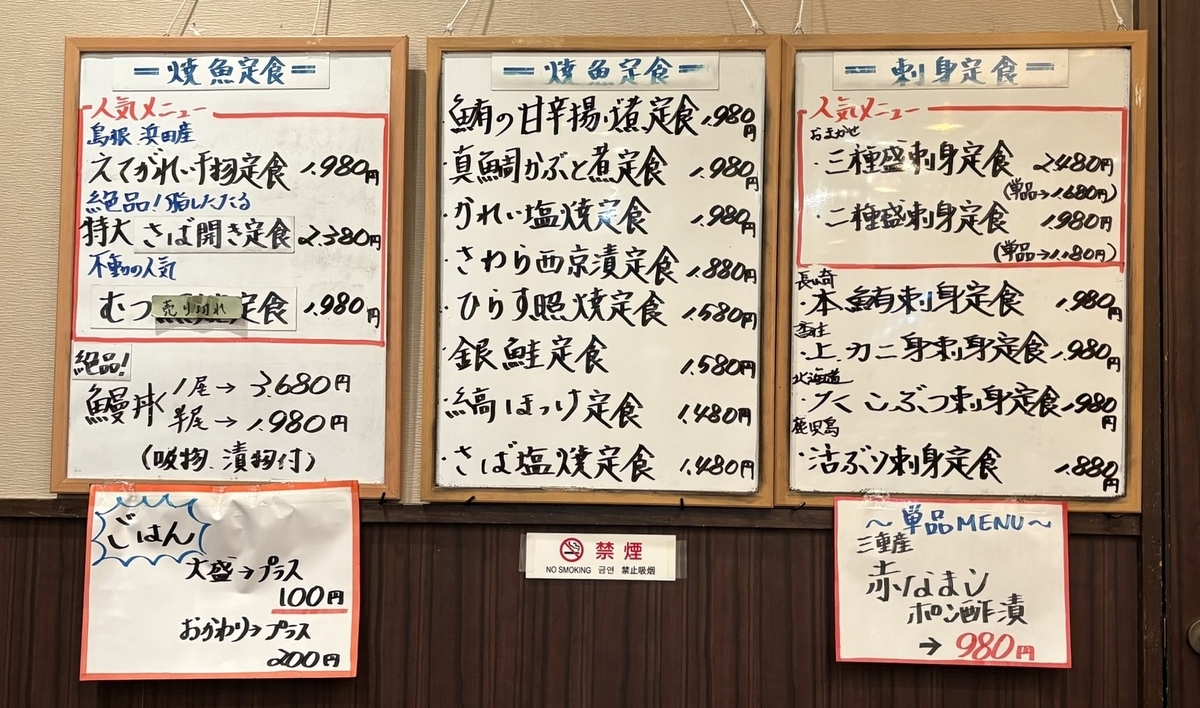 =焼魚定食=
人気メニュー
島根 浜田産
えてがれい干物定食 1.980円
絶品!脂したたる
特大 さば開き定食 2.380円
不動の人気
むつ 定食 1.980円
売り切れ
絶品!
鰻丼 1尾→ 3.680円
半尾→ 1.980円
(吸物、漬物付)
ごはん
大盛→プラス
100円
おかわり→プラス
200円
=焼魚定食=
鮪の甘辛揚げ煮定食 1.980円
・真鯛かぶと煮定食 1.980円
・かれい塩焼定食 1.980円
・さわら西京漬定食 1.880円
・ひらす照焼定食 1.580円
・銀鮭定食 1.580円
・縞ほっけ定食 1.480円
・さば塩焼定食 1.480円
禁煙
NO SMOKING 금연 禁止吸烟
=刺身定食=
人気メニュー
おまかせ
・三種盛刺身定食 2.480円
(単品→1.680円)
・二種盛刺身定食 1.980円
(単品→1.180円)
長崎
・本鮪刺身定食 1.980円
・上 カニ身刺身定食 1.980円
北海道
つぶつ刺身定食 1.980円
鹿児島
・活ぶり刺身定食 1.880円
~単品MENU~
三重産
赤なまこ
ポン酢漬
→ 980円